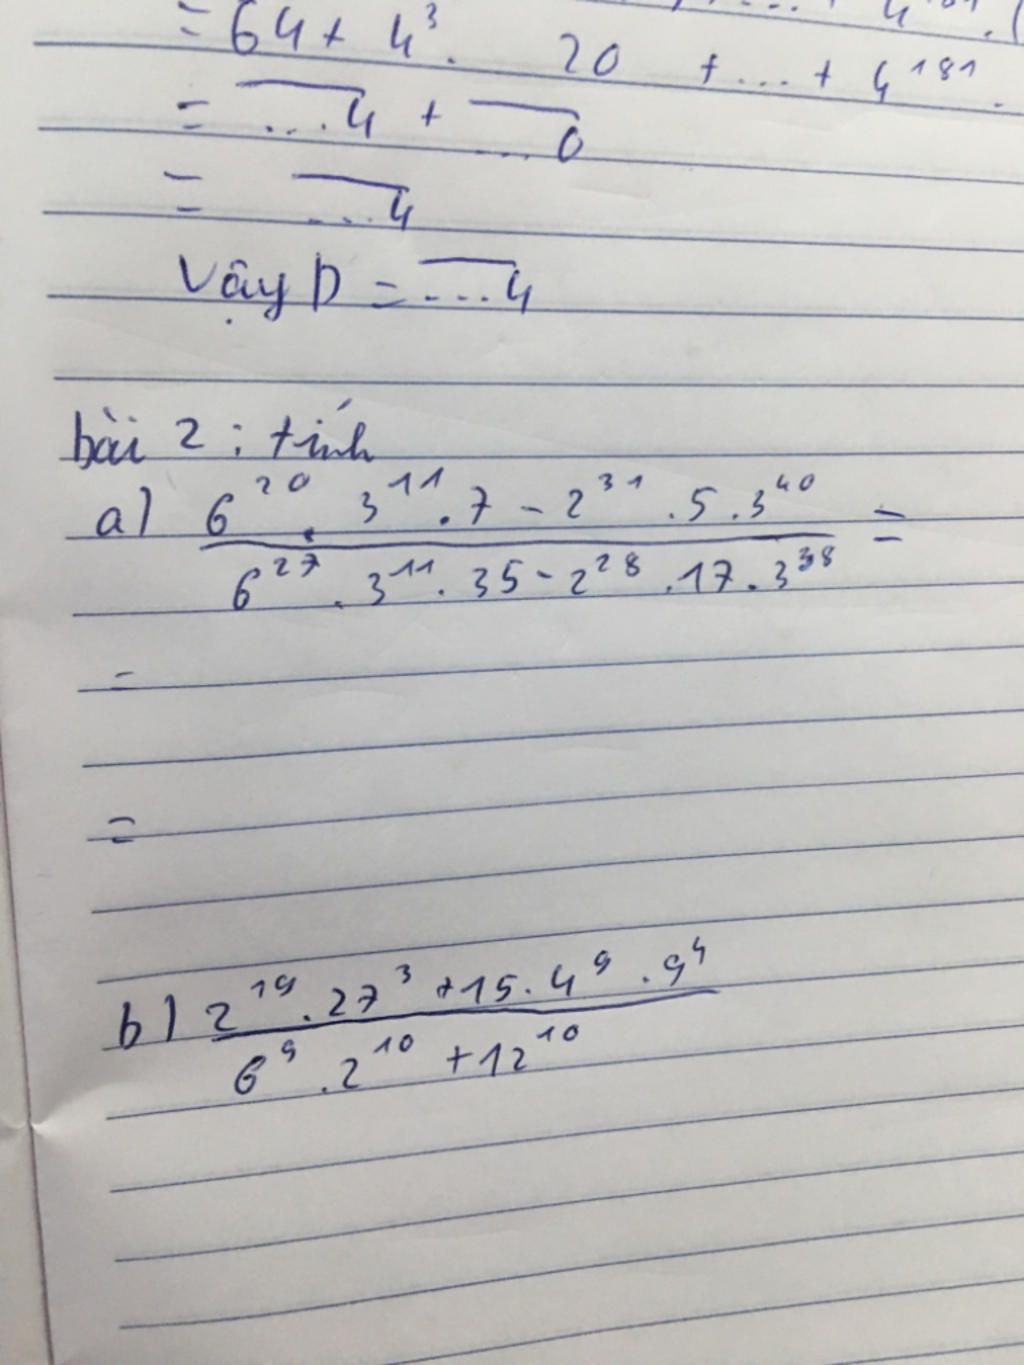 = 64 + 4³. 20 + ... + 4¹⁸¹.
= ...4 + ...0
= ...4
Vậy D = ...4
bài 2 : tính
a) 6²⁰ . 3¹¹ . 7 - 2³¹ . 5 . 3⁴⁰ =
6²⁷ . 3¹¹ . 35 - 2²⁸ . 17 . 3³⁸
=
=
b) 2¹⁹ . 27³ + 15 . 4⁹ . 9⁴
6⁹ . 2¹⁰ + 12¹⁰